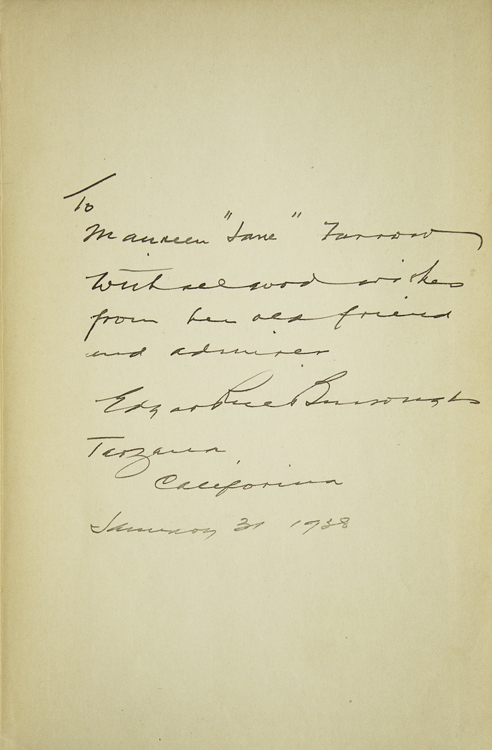 To
Maureen "Jane" Farrow
With all good wishes
from her old friend
and admirer
Edgar Rice Burroughs
Tarzana,
California
January 31 1938